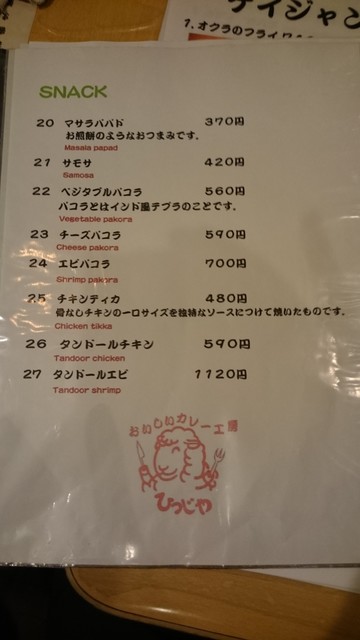 テイジャン
1. オクラのフライ
SNACK
20 マサラパパド 370円
お煎餅のようなおつまみです。
Masala papad
21 サモサ 420円
Samosa
22 ベジタブルパコラ 560円
パコラとはインド風テプラのことです。
Vegetable pakora
23 チーズパコラ 590円
Cheese pakora
24 エビパコラ 700円
Shrimp pakora
25 チキンティカ 480円
骨なしチキンの一口サイズを独特なソースにつけて焼いたものです。
Chicken tikka
26 タンドールチキン 590円
Tandoor chicken
27 タンドールエビ 1120円
Tandoor shrimp
おいしいカレー工房
ひつじや